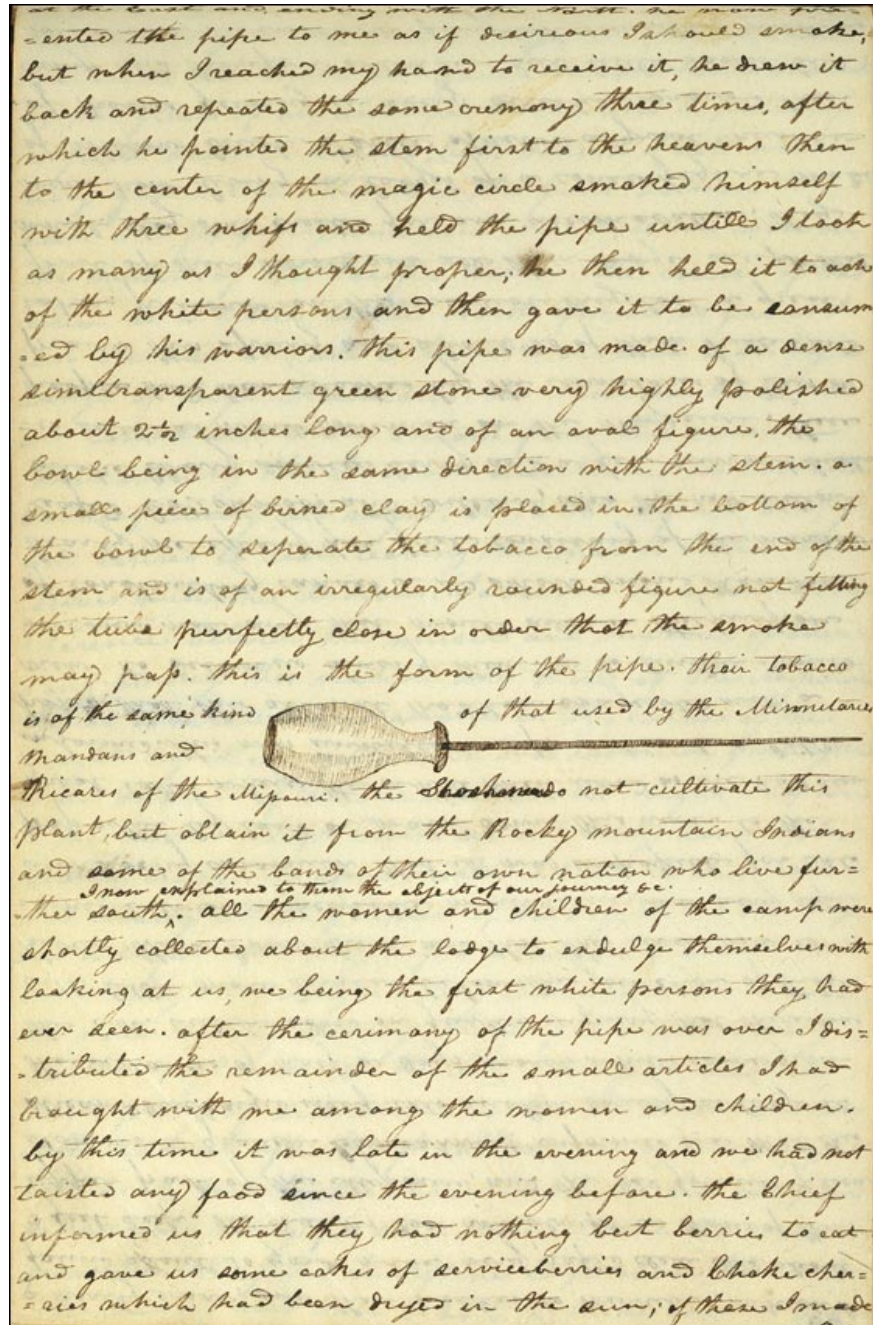 at the East and ending with the North. he now pre-
=ented the pipe to me as if desirious I should smoke,
but when I reached my hand to receive it, he drew it
back and repeated the same cremony three times, after
which he pointed the stem first to the heavens then
to the center of the magic circle smoked himself
with three whifs and held the pipe untill I took
as many as I thought proper; he then held it to each
of the white persons and then gave it to be consum
=ed by his warriors. this pipe was made of a dense
simitransparent green stone very highly polished
about 2 1/2 inches long and of an oval figure, the
bowl being in the same direction with the stem. a
small piece of birned clay is placed in the bottom of
the bowl to seperate the tobacco from the end of the
stem and is of an irregularly rounded figure not fitting
the tube purfectly close in order that the smoke
may pass. this is the form of the pipe. their tobacco
is of the same kind of that used by the Minnetares
Mandans and
Ricares of the Missouri. the Shoshonees do not cultivate this
plant, but obtain it from the Rocky mountain Indians
and some of the bands of their own nation who live fur=
I now explained to them the objects of our journey &c.
=ther south^. all the women and children of the camp were
shortly collected about the lodge to endulge themselves with
looking at us, we being the first white persons they had
ever seen. after the cerimony of the pipe was over I dis=
=tributed the remainder of the small articles I had
brought with me among the women and children.
by this time it was late in the evening and we had not
taisted any food since the evening before. the Chief
informed us that they had nothing but berries to eat
and gave us some cakes of serviceberries and Choke cher=
=ries which had been dryed in the sun; of these I made